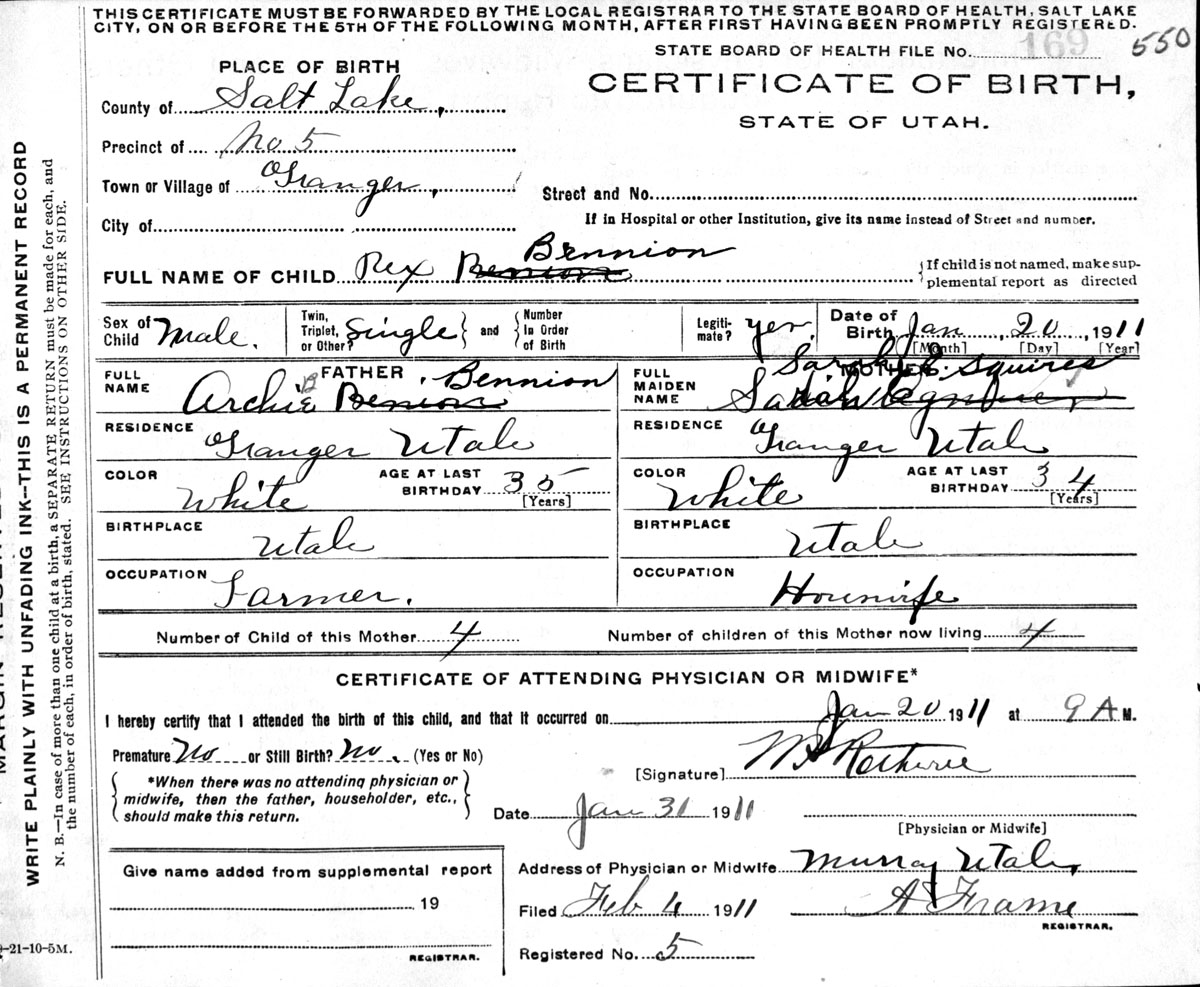 THIS CERTIFICATE MUST BE FORWARDED BY THE LOCAL REGISTRAR TO THE STATE BOARD OF HEALTH, SALT LAKE
CITY, ON OR BEFORE THE 5TH OF THE FOLLOWING MONTH, AFTER FIRST HAVING BEEN PROMPTLY REGISTERED.
STATE BOARD OF HEALTH FILE No. 169 550
PLACE OF BIRTH
CERTIFICATE OF BIRTH,
STATE OF UTAH.
County of Salt Lake,
Precinct of No. 5
Town or Village of Granger,
Street and No.
City of
If in Hospital or other Institution, give its name instead of Street and number.
Bennion
FULL NAME OF CHILD Rex Benion
If child is not named, make sup-
plemental report as directed
Sex of Child Male.
Twin, Triplet, or Other? Single and Number In Order of Birth
Legiti-mate? yes
Date of Birth Jan 20 1911
[Month] [Day] [Year]
FATHER
FULL NAME Archie B Benion Bennion
MOTHER
FULL MAIDEN NAME Sarah Squires
RESIDENCE Granger Utah
RESIDENCE Granger Utah
COLOR White AGE AT LAST BIRTHDAY 35 [Years]
COLOR White AGE AT LAST BIRTHDAY 34 [Years]
BIRTHPLACE Utah
BIRTHPLACE Utah
OCCUPATION Farmer.
OCCUPATION Housewife
Number of Child of this Mother 4
Number of children of this Mother now living 4
CERTIFICATE OF ATTENDING PHYSICIAN OR MIDWIFE*
I hereby certify that I attended the birth of this child, and that it occurred on Jan 20 1911 at 9 A M.
Premature No or Still Birth? No. (Yes or No)
*When there was no attending physician or
midwife, then the father, householder, etc.,
should make this return.
[Signature]
Date Jan 31 1911
[Physician or Midwife]
Give name added from supplemental report
19
REGISTRAR.
Address of Physician or Midwife Murray Utah,
Filed Feb 4 1911 A Frame
REGISTRAR.
Registered No. 5
-21-10-5M.
WRITE PLAINLY WITH UNFADING INK--THIS IS A PERMANENT RECORD
N. B.—In case of more than one child at a birth, a SEPARATE RETURN must be made for each, and
the number of each, in order of birth, stated. SEE INSTRUCTIONS ON OTHER SIDE.